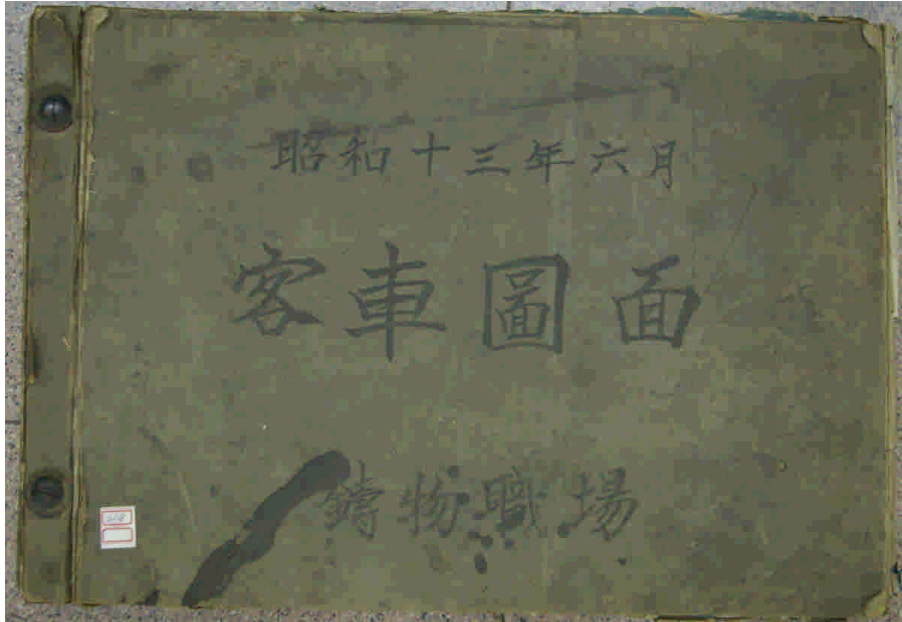 昭和十三年六月
客車圖面
鑄物職場